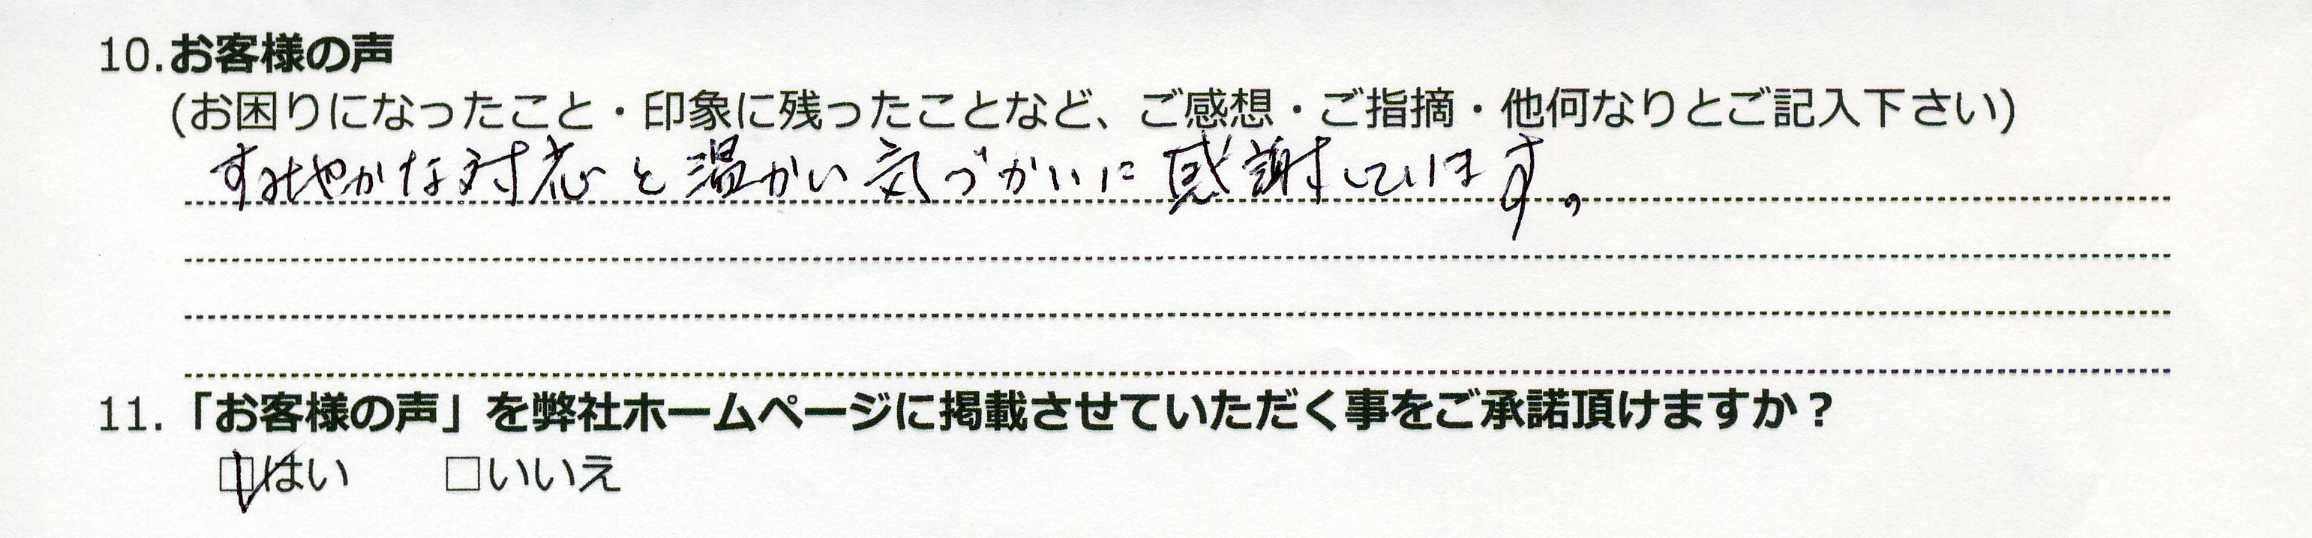 10.お客様の声
(お困りになったこと・印象に残ったことなど、ご感想・ご指摘・他何なりとご記入下さい)
すみやかな対応と温かい気づかいに感謝しています。
11.「お客様の声」を弊社ホームページに掲載させていただく事をご承諾頂けますか？
☑はい □いいえ